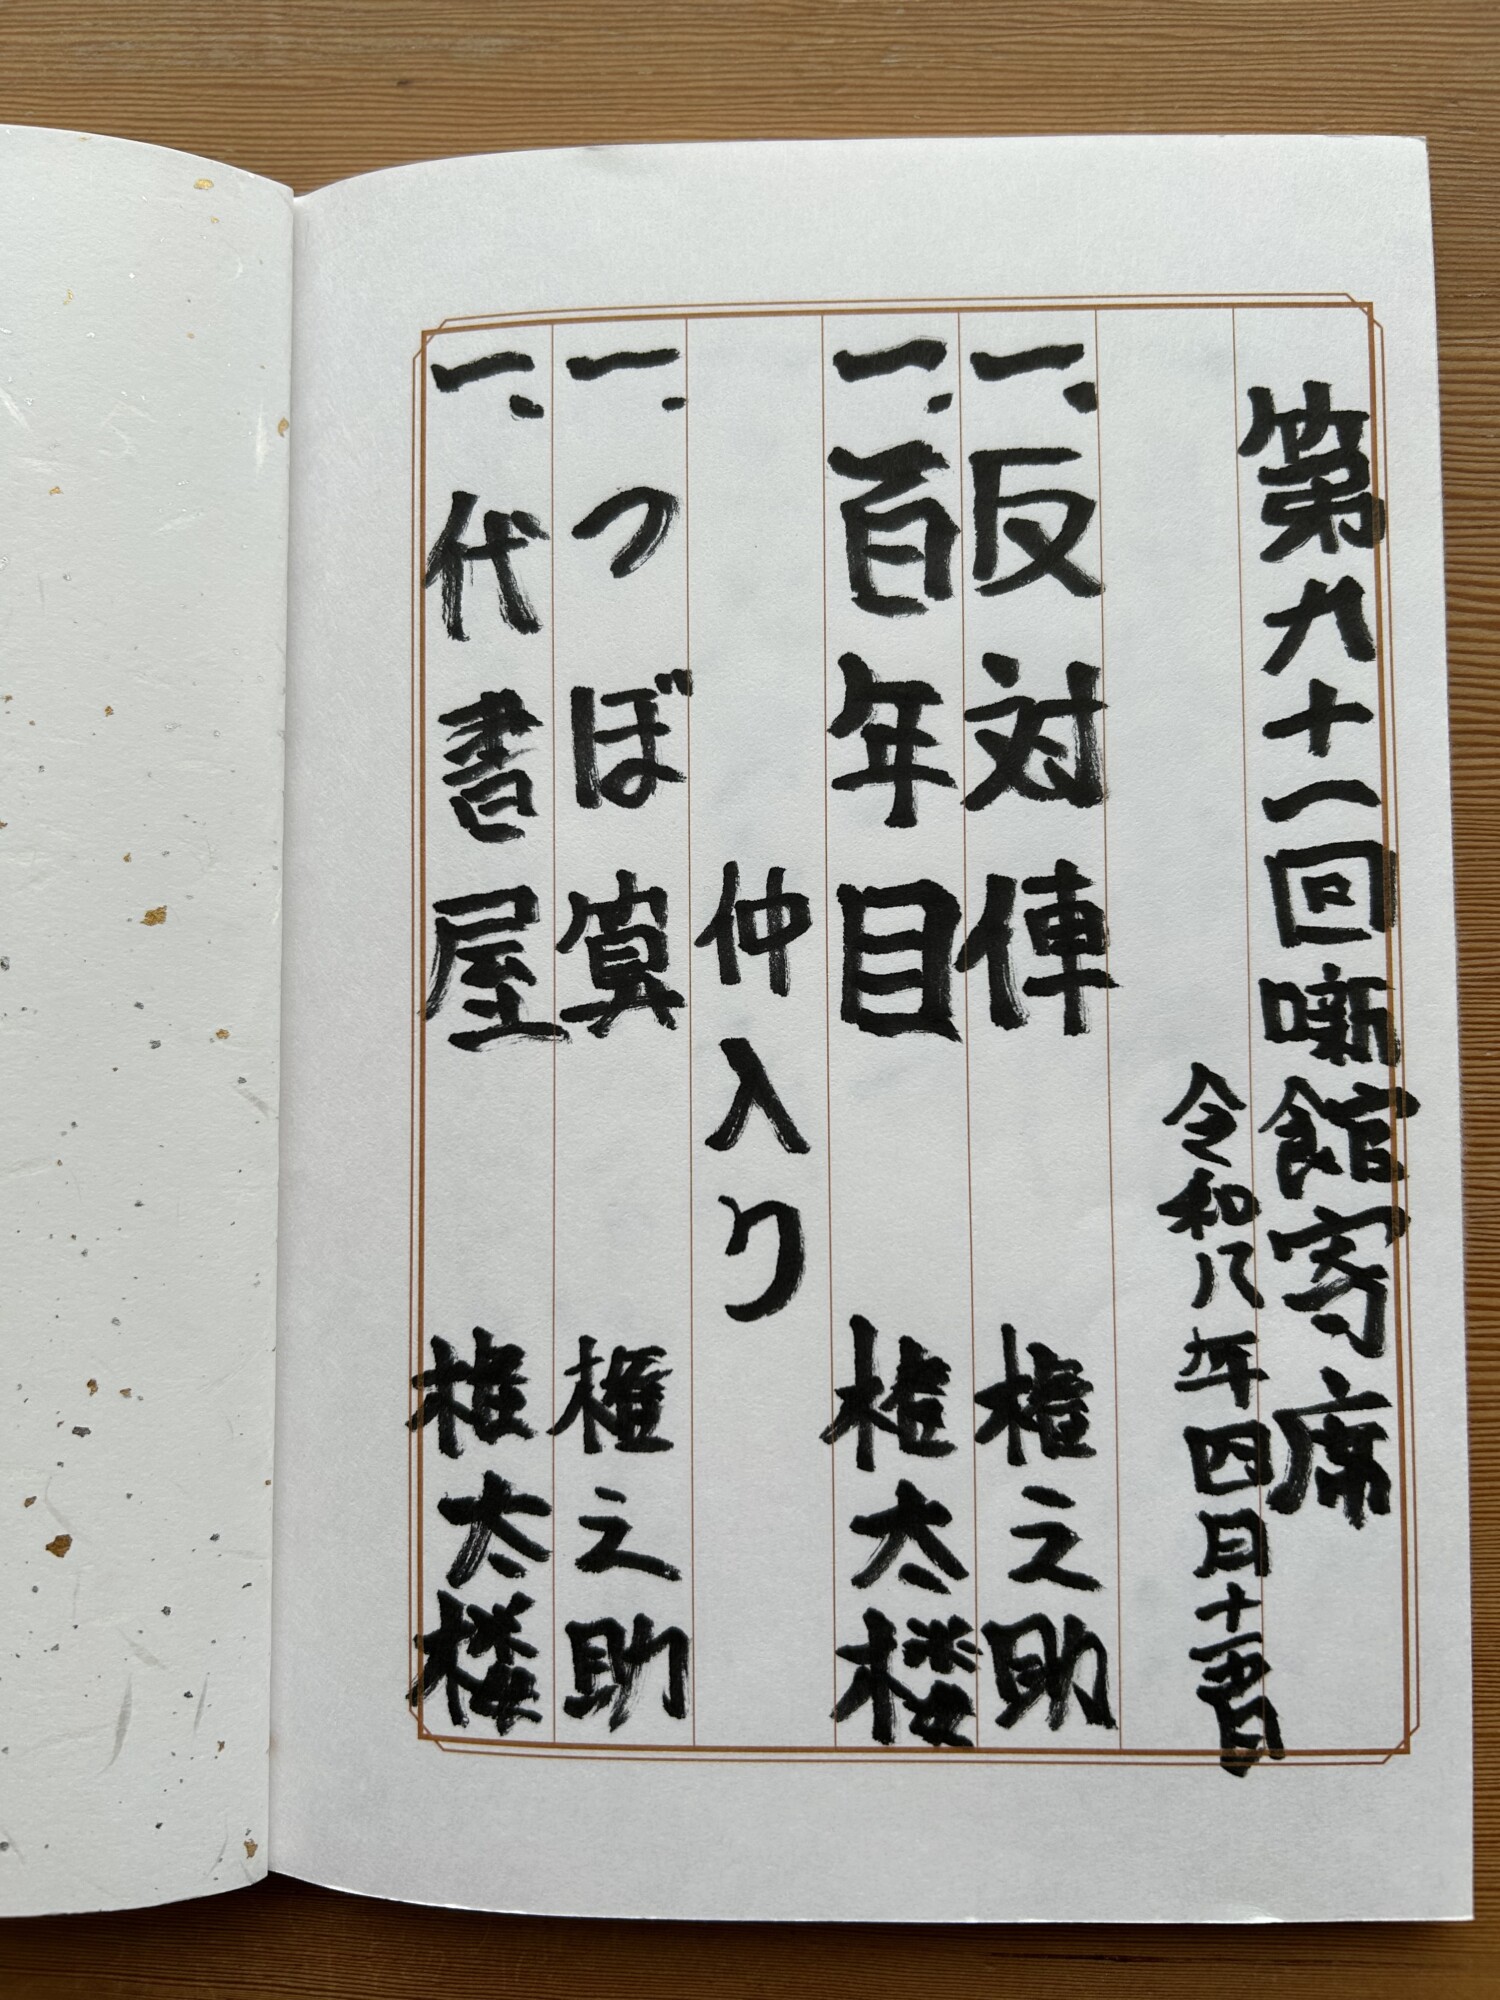 第九十一回噺館寄席
令和八年四月十
一、反対俥　権之助
一、百年目　権太楼
仲入り
一、つぼ算　権之助
一、代書屋　権太楼